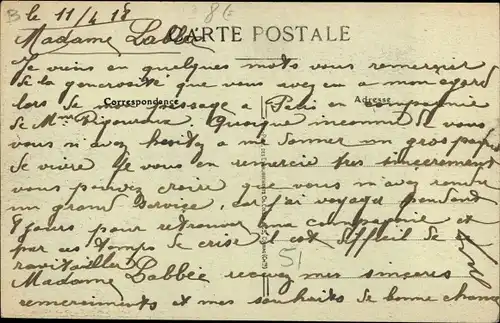 le 11/4 18
CARTE POSTALE
Madame Labbée
Je viens en quelques mots vous remercier
de la generosité que vous avez eu a mon egard
lors de mon passage a en compagnie
Correspondance
Adresse
de Mme Quoique inconnu de vous
vous n'avez hesitez a me donner un gros pain
de vivre Je vous en remercie tres sincèrement
vous pouvez croire que vous m'avez rendu
un grand service, car j'ai voyagé pendant
jours pour retrouver ma compagnie et
par ces temps de crise il est difficil de se
ravitailler
Madame Labbée recevez mes sincères
remerciments et mes souhaits de bonne chance
51